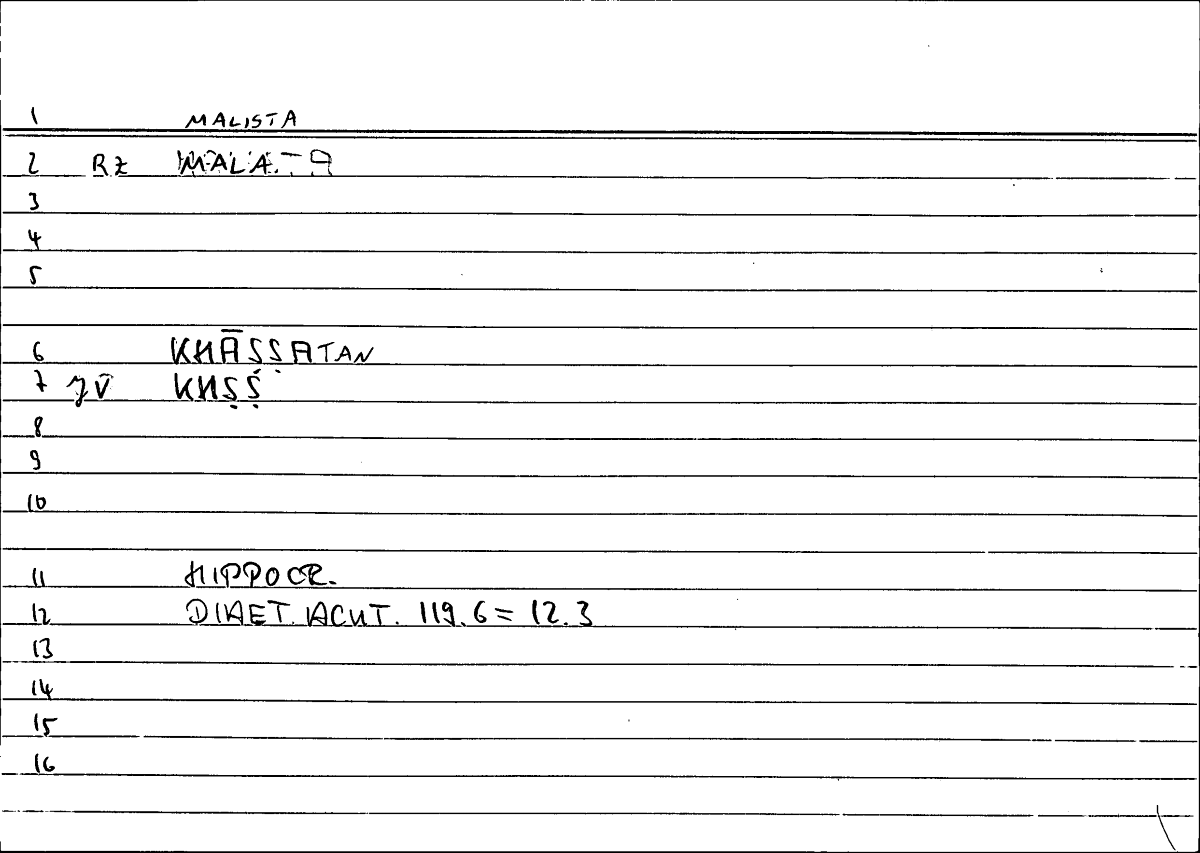 1 MALISTA
2 RZ
3
4
5
6 KHĀṢṢATAN
7 JV KHṢṢ
8
9
10
11 HIPPOCR.
12 DIAET. ACUT. 119.6 = 12.3
13
14
15
16